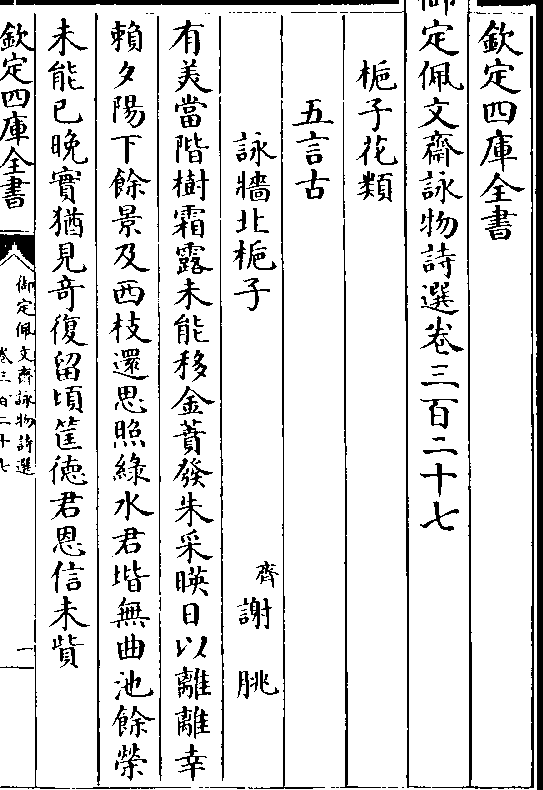 欽定四庫全書
御定佩文齋詠物詩選卷三百二十七
梔子花類
五言古
詠牆北梔子
齊謝朓
有美當階樹霜露未能移金蕡發朱采暎日以離離幸
賴夕陽下餘景及西枝還思照綠水君堦無曲池餘榮
未能已晚實猶見奇復留頃筐德君恩信未貲
欽定四庫全書
御定佩文齋詠物詩選
卷三百二十七
一